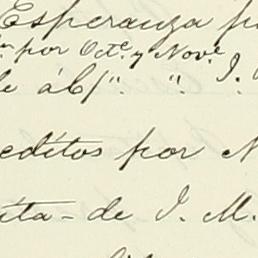 Esperanza p
por Octe. y Nove
de áb/". " I.
editos por N
ita - de I. M.